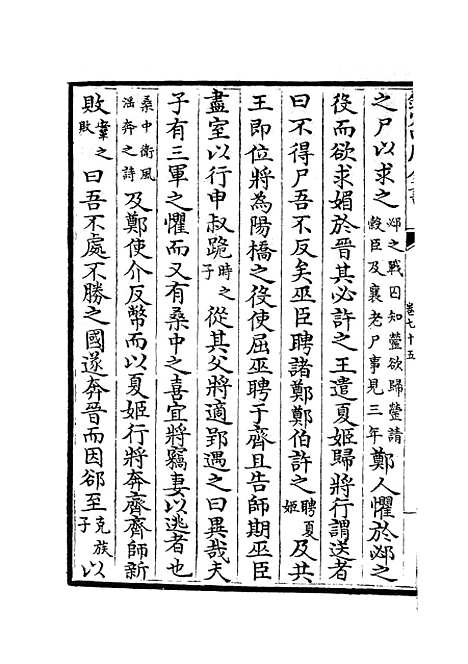 卷七十五
之尸以求之邲之戰囚知罃欲歸罃請榖臣及襄老尸事見三年鄭人懼於邲之
役而欲求媚於晉其必許之王遣夏姬歸將行謂送者
曰不得尸吾不反矣巫臣聘諸鄭鄭伯許之聘夏姬及共
王即位將為陽橋之役使屈巫聘于齊且告師期巫臣
盡室以行申叔跪時之子從其父將適郢遇之曰異哉夫
子有三軍之懼而又有桑中之喜宜將竊妻以逃者也
桑中衛風淫奔之詩及鄭使介反幣而以夏姬行將奔齊齊師新
敗鞌之敗曰吾不處不勝之國遂奔晉而因郤至克族子以